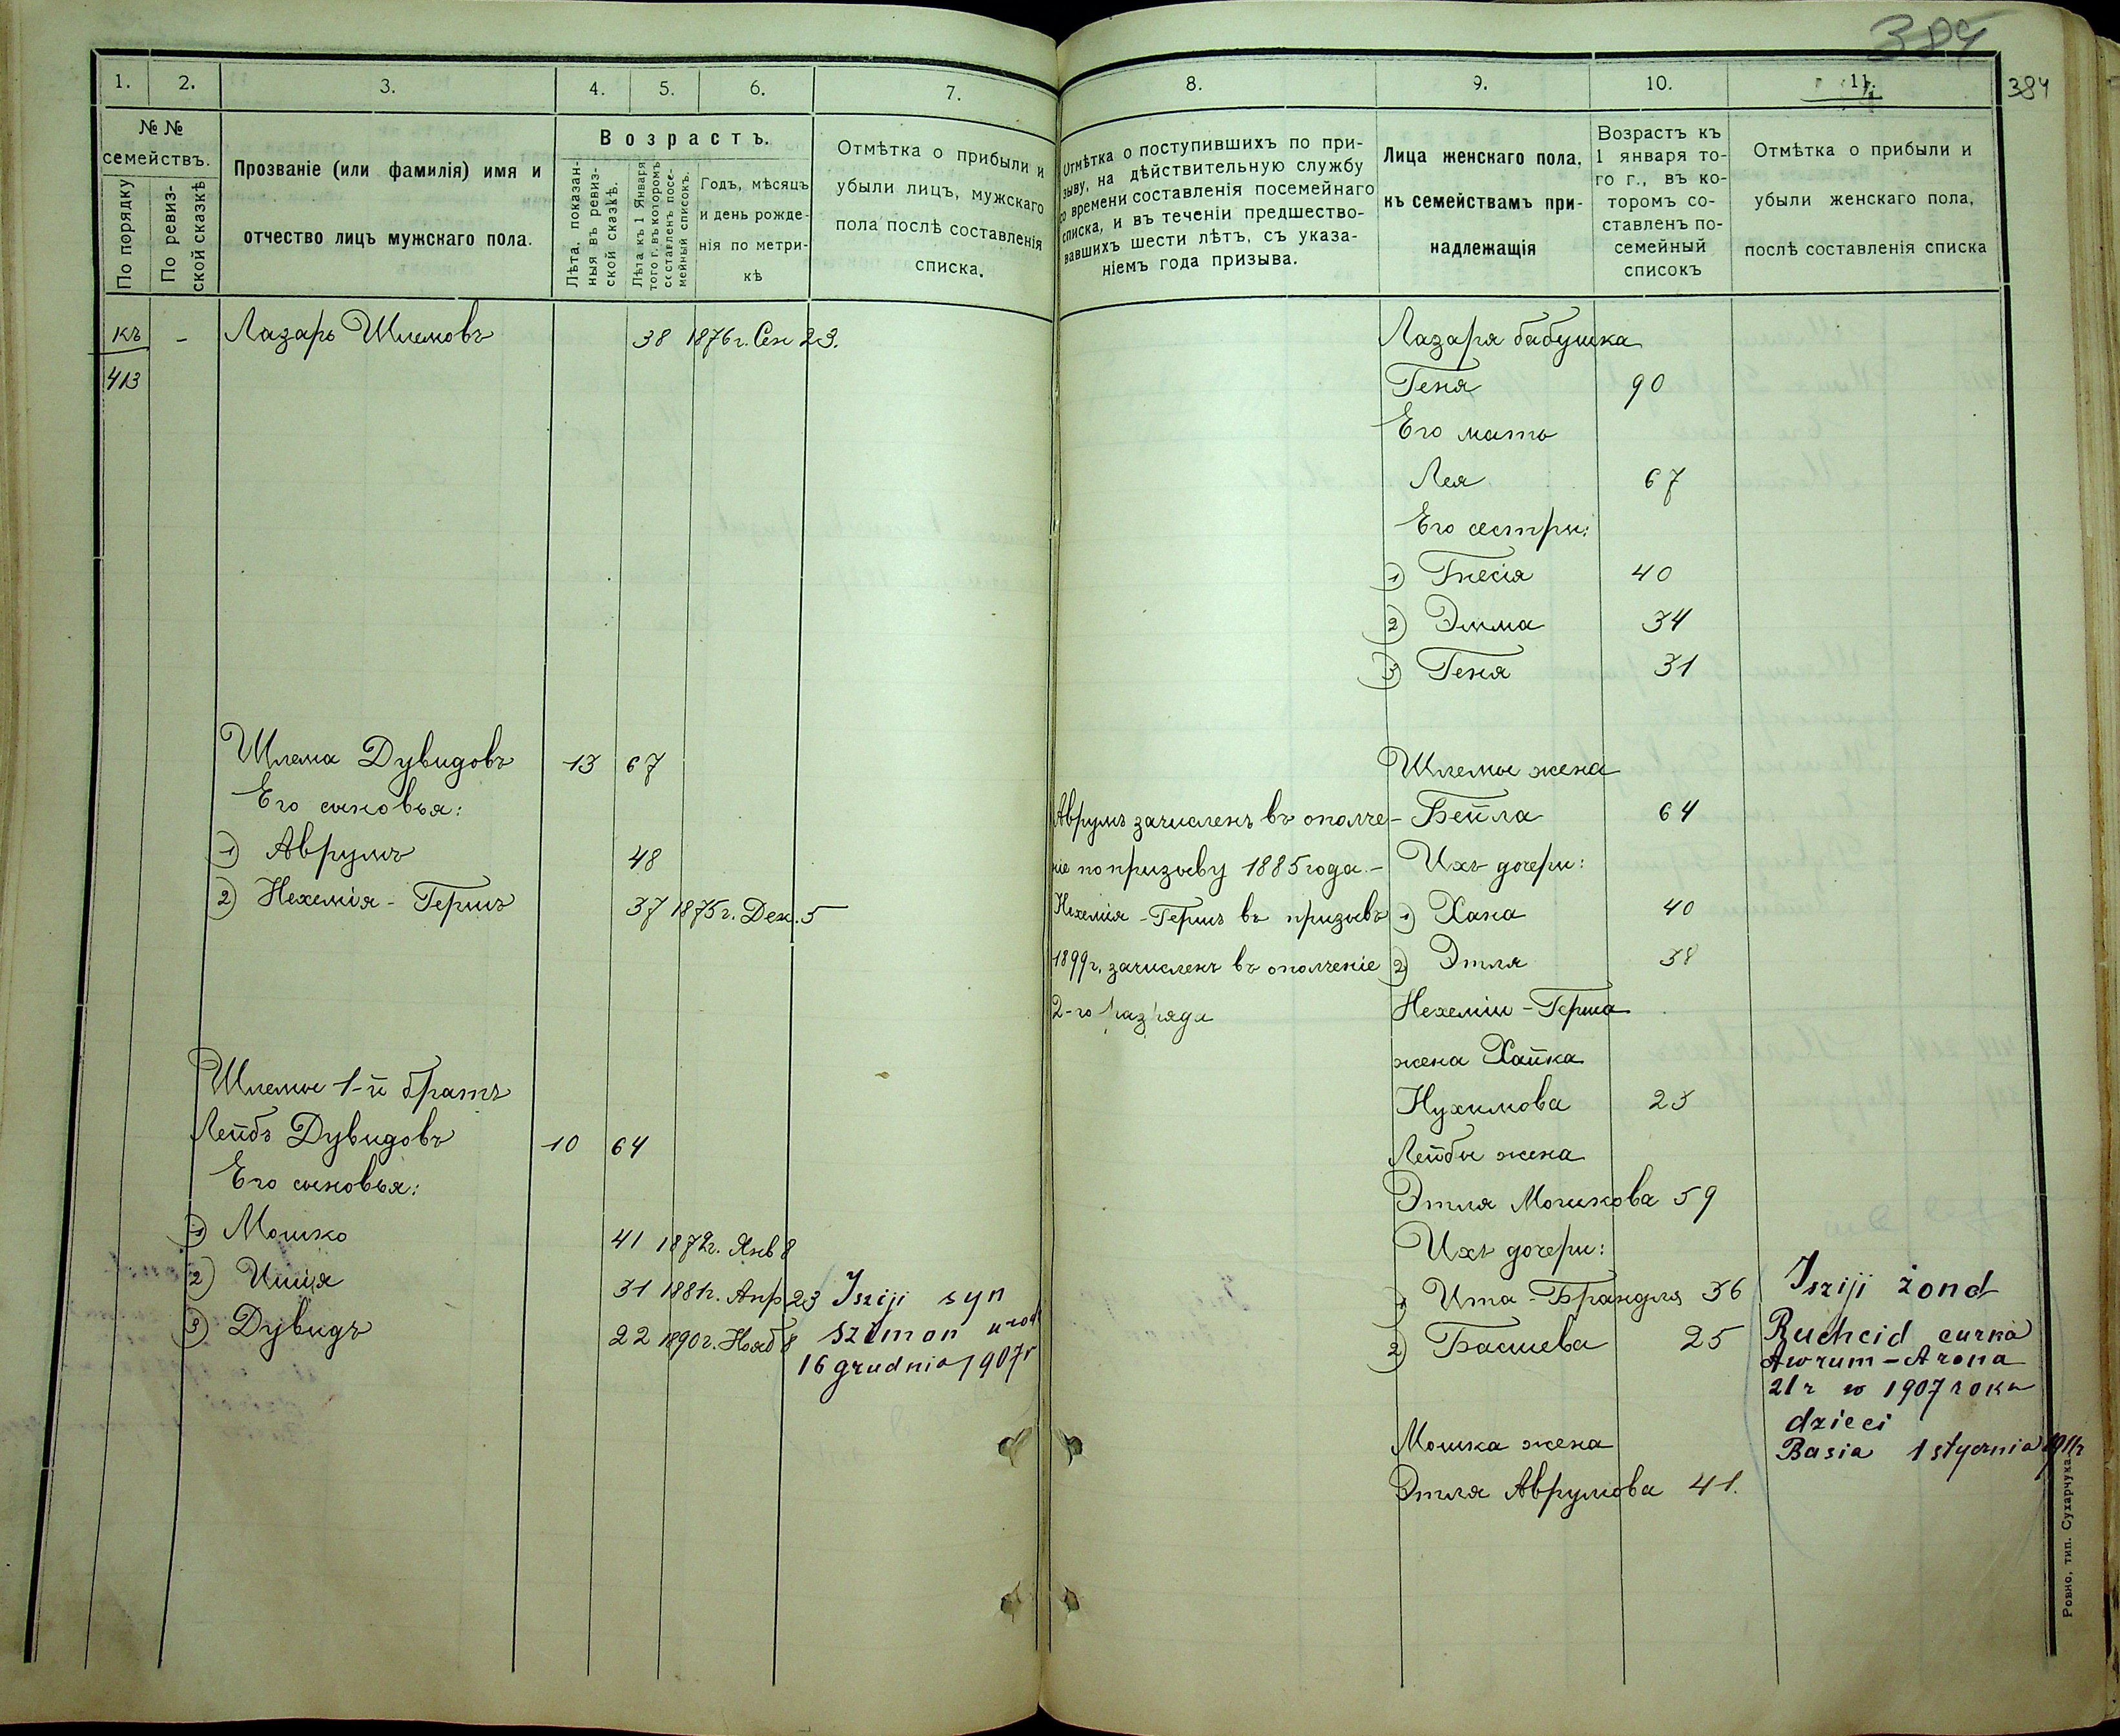 384
384
1.
2.
3.
4.
5.
6.
7.
№ №
семействъ.
По порядку
По ревиз-
ской сказкѣ
Прозваніе (или фамилія) имя и
отчество лицъ мужскаго пола.
Возрастъ.
Лѣта, показан-
ныя въ ревиз-
ской сказкѣ.
Лѣта къ 1 Января
того г. въ которомъ
составленъ посе-
мейный списокъ.
Годъ, мѣсяцъ
и день рожде-
нія по метри-
кѣ
Отмѣтка о прибыли и
убыли лицъ, мужскаго
пола послѣ составленія
списка.
къ - Лазарь Шлемовъ 38 1876 г. Сен 23.
413
Шлема Дувидовъ 13 67
Его сыновья:
1) Аврумъ 48
2) Нехемія-Гершъ 37 1875 г. Дек. 5
Шлемы 1-й братъ
Лейбъ Дувидовъ 10 64
Его сыновья:
1) Мошко 41 1872 г. Янв 8
2) Ишія 31 1881 г. Апр 23 Isziji syn
3) Дувидъ 22 1890 г. Нояб 8 Szimon urod
16 grudnia 1907 r
8.
9.
10.
11.
Отмѣтка о поступившихъ по при-
зыву, на дѣйствительную службу
со времени составленія посемейнаго
списка, и въ теченіи предшество-
вавшихъ шести лѣтъ, съ указа-
ніемъ года призыва.
Лица женскаго пола,
къ семействамъ при-
надлежащія
Возрастъ къ
1 января то-
го г., въ ко-
торомъ со-
ставленъ по-
семейный
списокъ
Отмѣтка о прибыли и
убыли женскаго пола,
послѣ составленія списка
Лазаря бабушка
Геня 90
Его мать
Лея 67
Его сестры:
1) Гнесія 40
2) Эмма 34
3) Геня 31
Шлемы жена
Аврумъ зачисленъ въ ополче- Бейла 64
ніе по призыву 1885 года.- Ихъ дочери:
Нехемія-Гершъ въ призывъ 1) Хана 40
1899 г. зачисленъ въ ополченіе 2) Этля 38
2-го разряда Нехеміи-Герша
жена Хайка
Нухимова 23
Лейбы жена
Этля Мошкова 59
Ихъ дочери:
1) Ита-Брандля 36 Isziji żona
2) Басшева 25 Ruchcid curka
Awrum-Arona
21 r w 1907 roku
dzieci
Мошка жена Basia 1 stycznia 1911 r
Этля Аврумова 41.
Ровно, тип. Сухарчука.